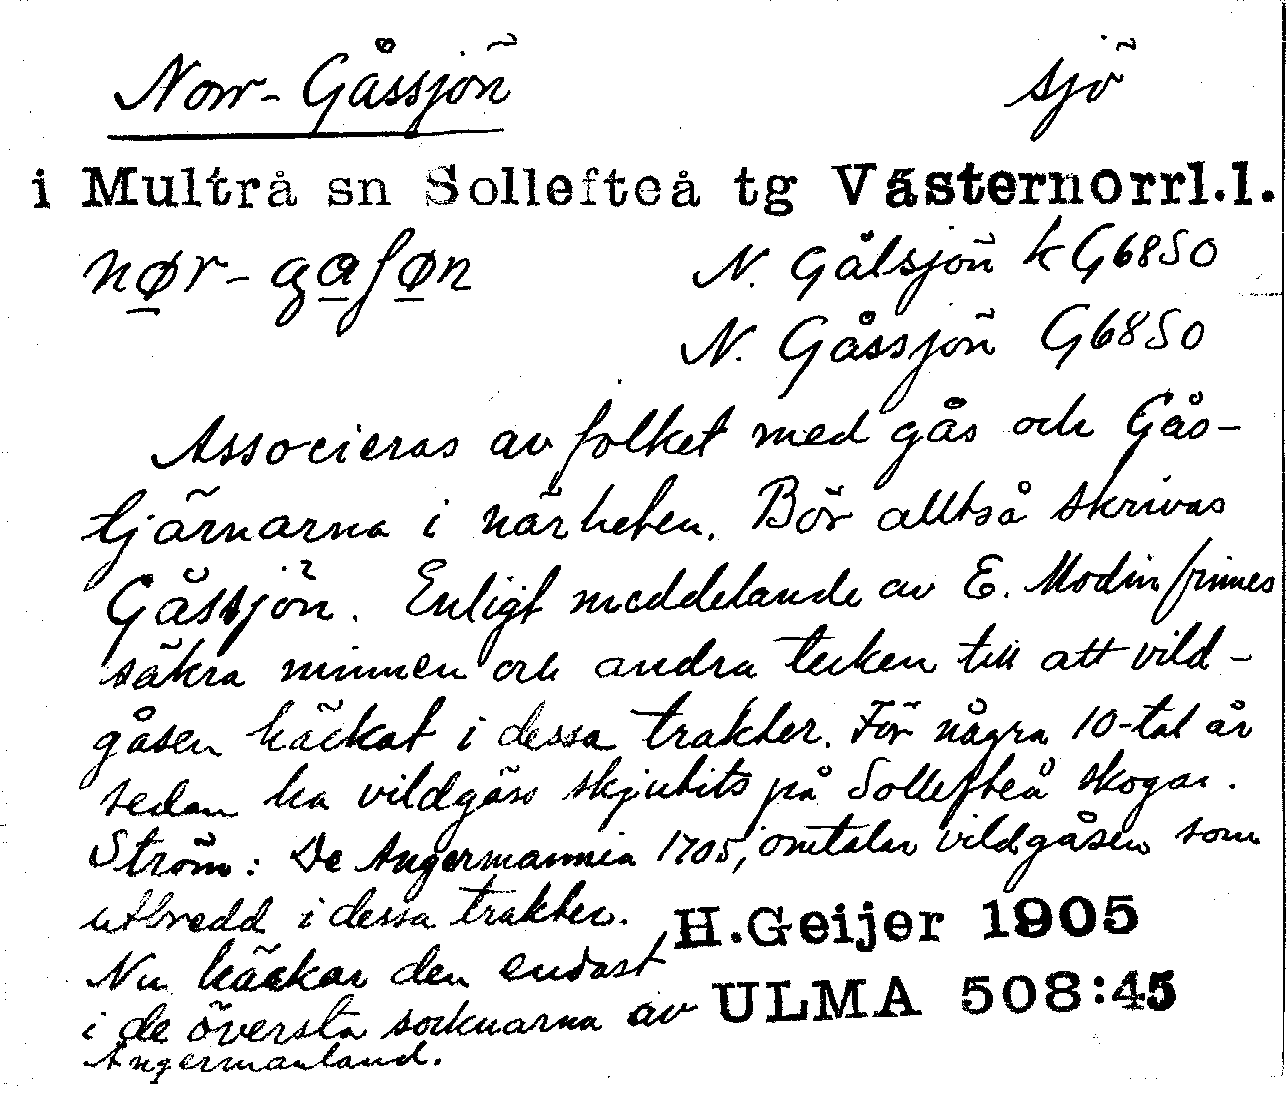 Norr-Gåssjön sjö
i Multrå sn Sollefteå tg Västernorrl.l.
nør-gaʃøn N. Gålsjön k G6850
N. Gåssjön G6850
Associeras av folket med gås och Gås-
tjärnarna i närheten. Bör alltså skrivas
Gåssjön. Enligt meddelande av E. Modin finnes
säkra minnen och andra tecken till att vild-
gåsen häckat i dessa trakter. För några 10-tal år
sedan ha vildgäss skjutits på Sollefteå skogar.
Ström: De Angermannia 1705, omtalar vildgåsen som
utbredd i dessa trakter.
H.Geijer 1905
Nu häckar den endast
i de översta socknarna av
ULMA 508:45
Ångermanland.